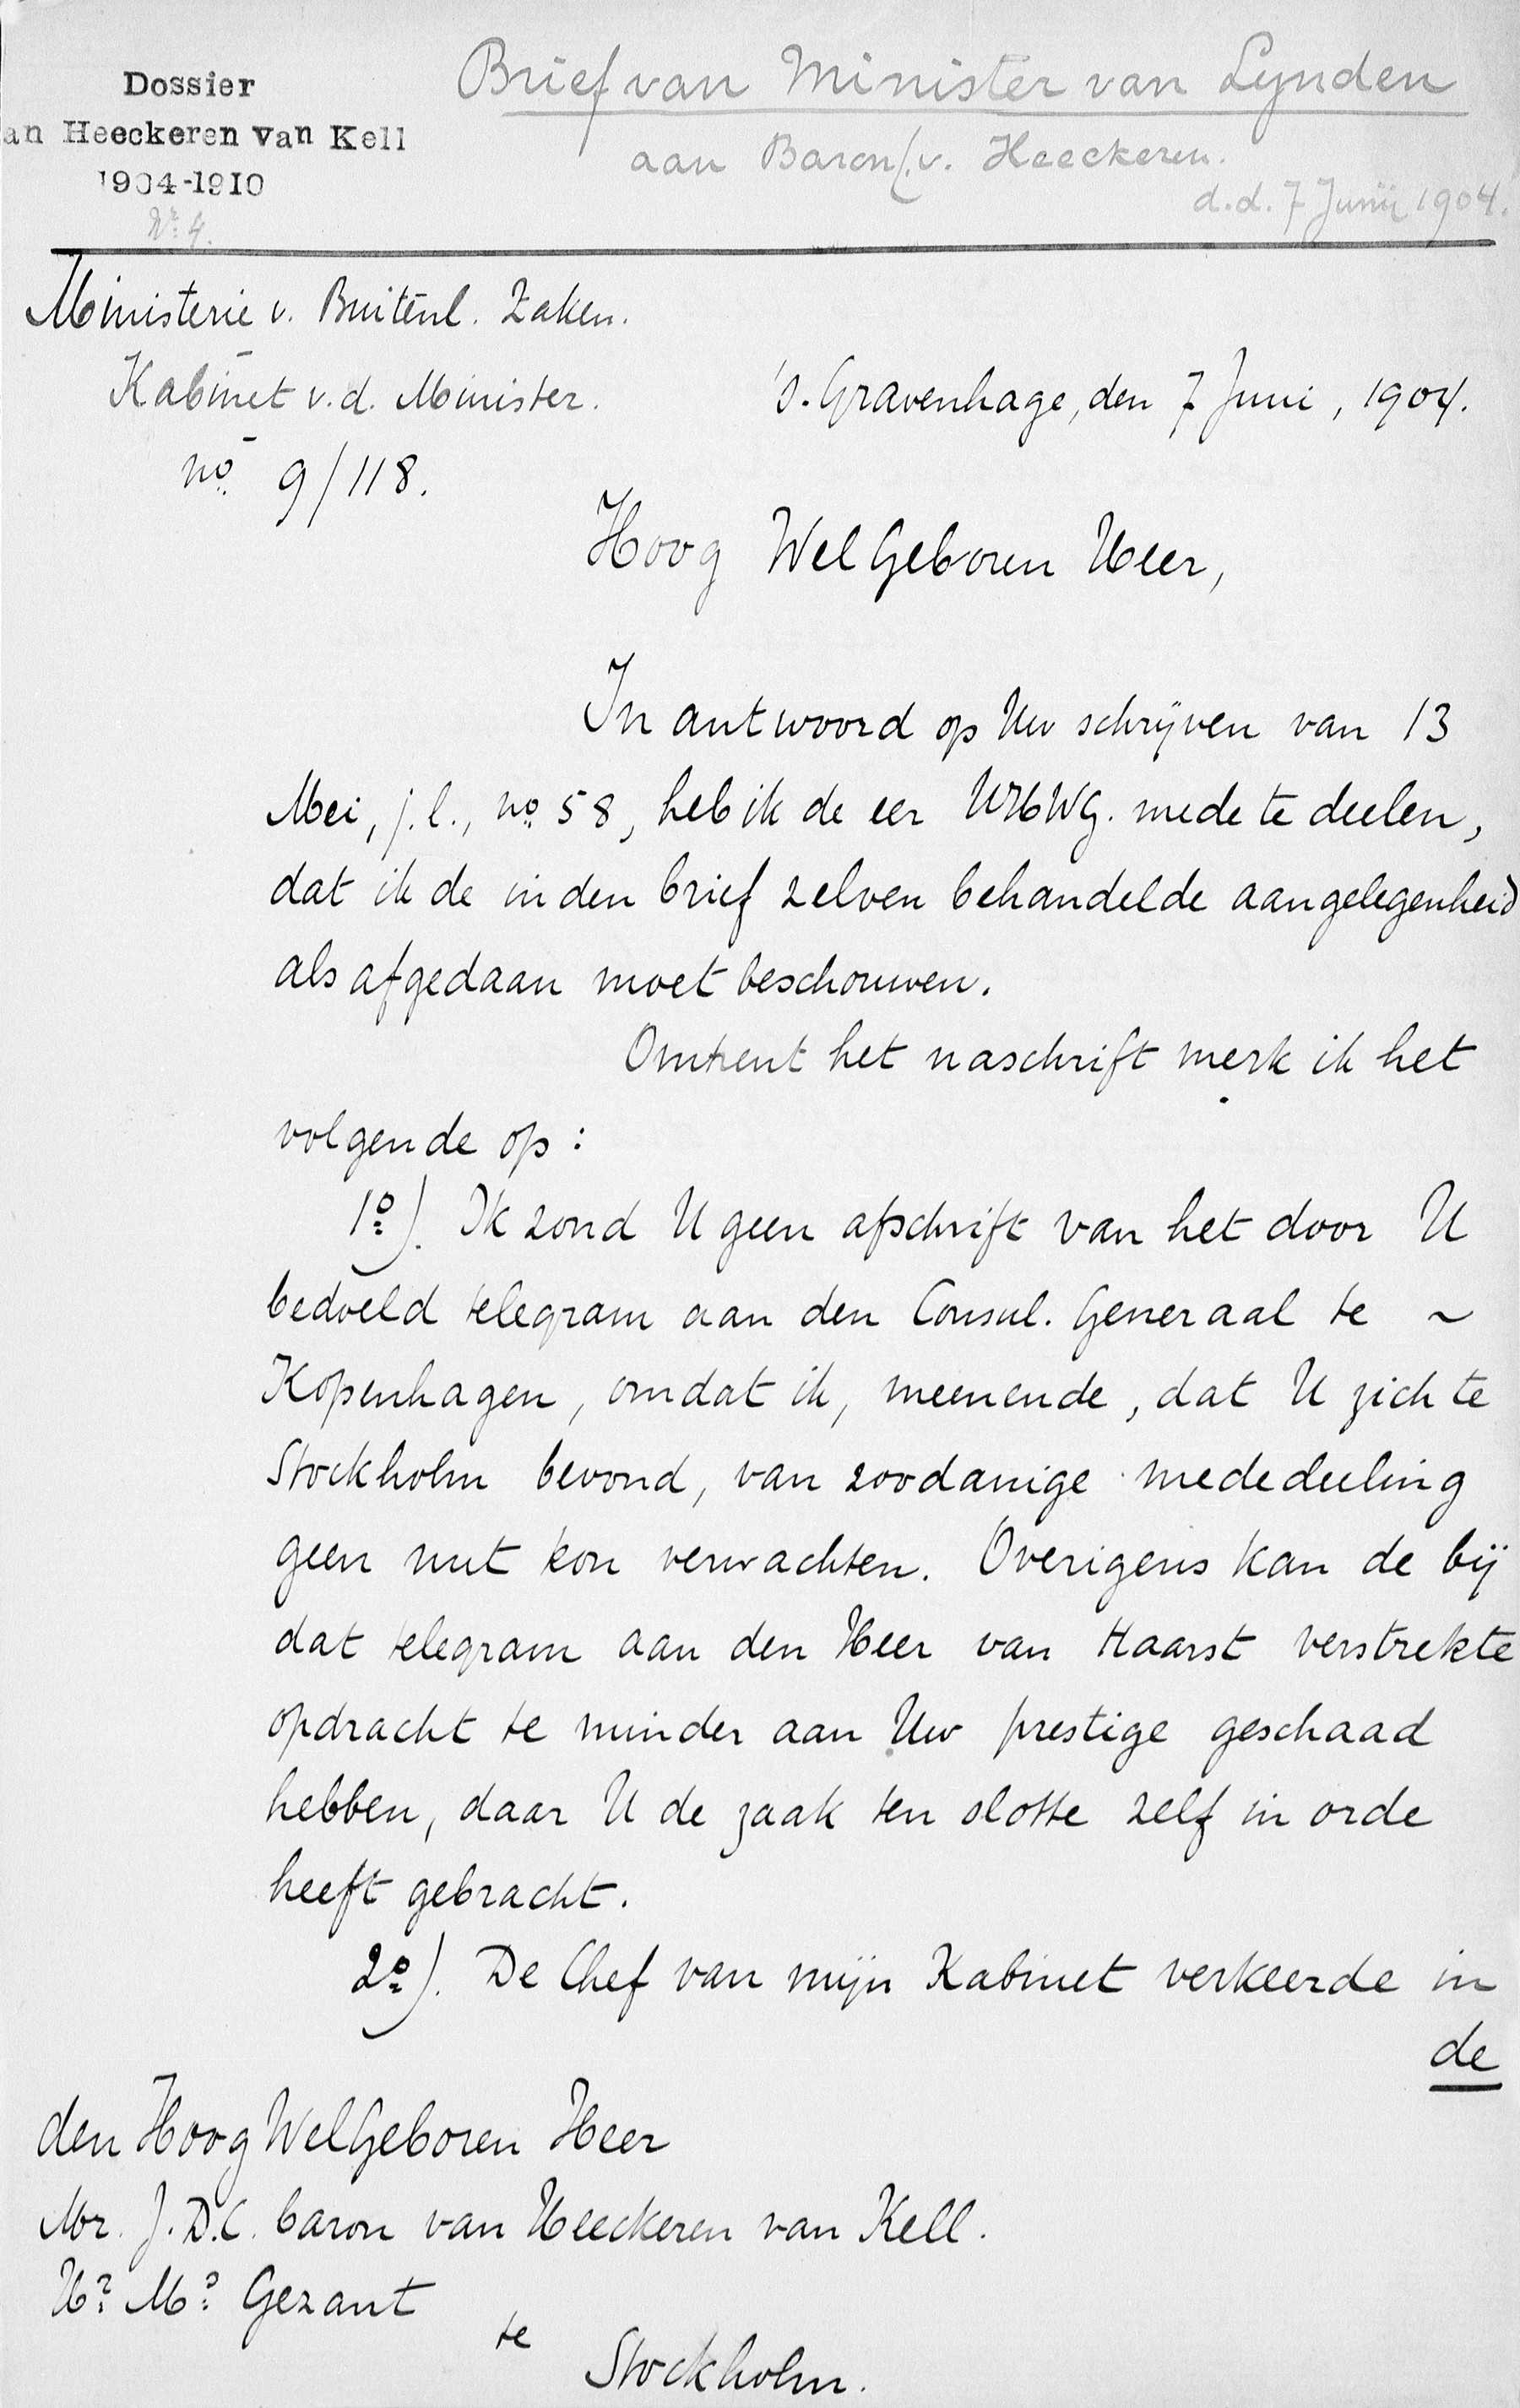 Dossier
an Heeckeren van Kell
1904-1910
No. 4.
Brief van Minister van Lynden
aan Baron v. Heeckeren.
d.d. 7 Junij 1904.
Ministerie v. Buitenl. Zaken.
Kabinet v.d. Minister.
no. 9/118.
's.Gravenhage, den 7 Juni, 1904.
Hoog WelGeboren Heer,
In antwoord op Uw schrijven van 13
Mei, j.l., no. 58, heb ik de eer UHWG. mede te deelen,
dat ik de in den brief zelven behandelde aangelegenheid
als afgedaan moet beschouwen.
Omtrent het naschrift merk ik het
volgende op:
1o.). Ik zond U geen afschrift van het door U
bedoeld telegram aan den Consul. Generaal te ~
Kopenhagen, omdat ik, meenende, dat U zich te
Stockholm bevond, van zoodanige mededeeling
geen nut kon verwachten. Overigens kan de bij
dat telegram aan den Heer van Haarst verstrekte
opdracht te minder aan Uw prestige geschaad
hebben, daar U de zaak ten slotte zelf in orde
heeft gebracht.
2o.). De Chef van mijn Kabinet verkeerde in
de
den Hoog WelGeboren Heer
Mr. J.D.C. baron van Heeckeren van Kell.
Hr. Ms. Gezant
te
Stockholm.